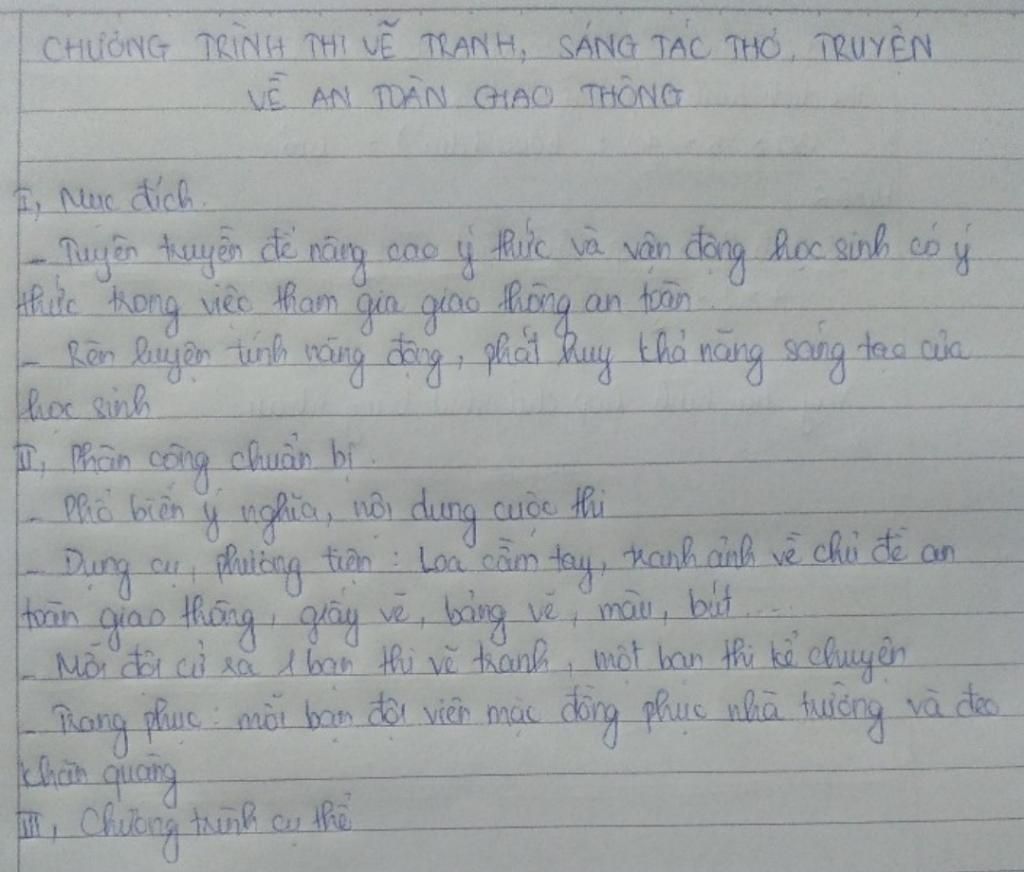 CHƯƠNG TRÌNH THI VẼ TRANH, SÁNG TÁC THƠ, TRUYỆN
VỀ AN TOÀN GIAO THÔNG
I, Mục đích.
- Tuyên truyền để nâng cao ý thức và vận động học sinh có ý
thức trong việc tham gia giao thông an toàn
- Rèn luyện tính năng động, phát huy khả năng sáng tạo của
học sinh
II, Phân công chuẩn bị.
- Phổ biến ý nghĩa, nội dung cuộc thi
- Dụng cụ, phương tiện : Loa cầm tay, tranh ảnh về chủ đề an
toàn giao thông, giấy vẽ, bảng vẽ, màu, bút....
- Mỗi đội cử ra 1 bạn thi vẽ tranh, một bạn thi kể chuyện
- Trang phục : mỗi bạn đội viên mặc đồng phục nhà trường và đeo
khăn quàng
III, Chương trình cụ thể